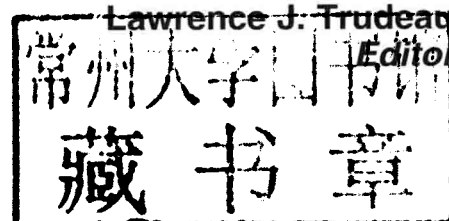 Lawrence J. Trudeau
Editor
常州大学图书馆
藏书章